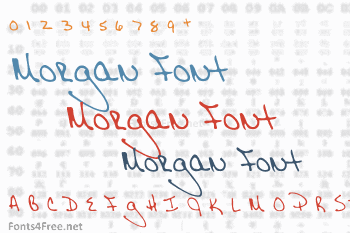 0 1 2 3 4 5 6 7 8 9 +
Morgan Font
Morgan Font
Morgan Font
A B C D E F g H I J K L M O P R S
Fonts4Free.net